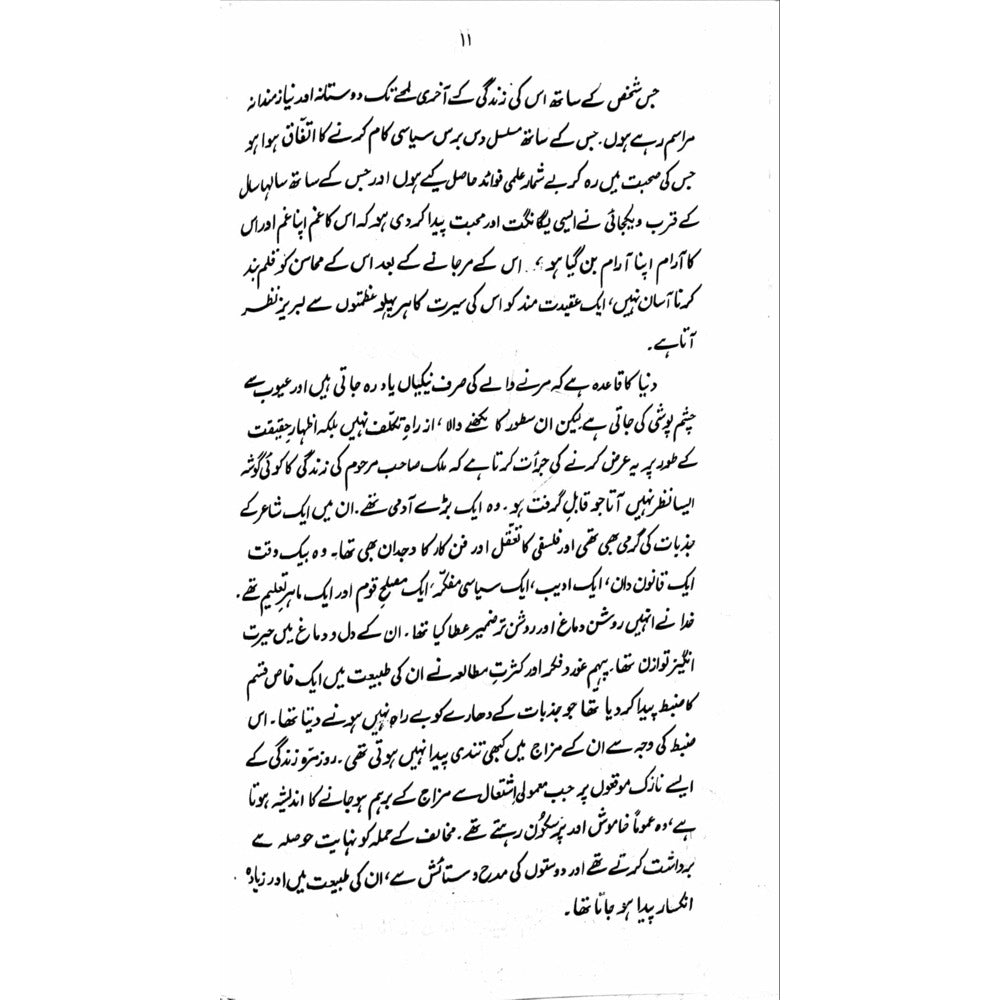 ۱۱
جس شخص کے ساتھ اس کی زندگی کے آخری لمحے تک دوستانہ اور نیاز مندانہ
مراسم رہے ہوں، جس کے ساتھ مسلسل دس برس سیاسی کام کرنے کا اتفاق ہوا ہو
جس کی صحبت میں رہ کر بے شمار علمی فوائد حاصل کیے ہوں اور جس کے ساتھ سالہا سال
کے قرب و یکجائی نے ایسی یگانگت اور محبت پیدا کر دی ہو کہ اس کا غم اپنا غم اور اس
کا آرام اپنا آرام بن گیا ہو، اس کے مر جانے کے بعد اس کے محاسن کو قلم بند
کرنا آسان نہیں، ایک عقیدت مند کو اس کی سیرت کا ہر پہلو عظمتوں سے لبریز نظر
آتا ہے۔
دنیا کا قاعدہ ہے کہ مرنے والے کی صرف نیکیاں یاد رہ جاتی ہیں اور عیوب سے
چشم پوشی کی جاتی ہے لیکن ان سطور کا لکھنے والا، از راہِ تکلف نہیں بلکہ اظہارِ حقیقت
کے طور پر یہ عرض کرنے کی جرأت کرتا ہے کہ ملک صاحب مرحوم کی زندگی کا کوئی گوشہ
ایسا نظر نہیں آتا جو قابلِ گرفت ہو۔ وہ ایک بڑے آدمی تھے۔ ان میں ایک شاعر کے
جذبات کی گرمی بھی تھی اور فلسفی کا تعقّل اور فن کار کا وجدان بھی تھا۔ وہ بیک وقت
ایک قانون دان، ایک ادیب، ایک سیاسی مفکّر، ایک مصلحِ قوم اور ایک ماہرِ تعلیم تھے۔
خدا نے انہیں روشن دماغ اور روشن تر ضمیر عطا کیا تھا۔ ان کے دل و دماغ میں حیرت
انگیز توازن تھا۔ پیہم غور و فکر اور کثرتِ مطالعہ نے ان کی طبیعت میں ایک خاص قسم
کا ضبط پیدا کر دیا تھا جو جذبات کے دھارے کو بے راہ نہیں ہونے دیتا تھا۔ اس
ضبط کی وجہ سے ان کے مزاج میں کبھی تندی پیدا نہیں ہوتی تھی۔ روزمرّہ زندگی کے
ایسے نازک موقعوں پر جب معمولی اشتعال سے مزاج کے برہم ہو جانے کا اندیشہ ہوتا
ہے، وہ عموماً خاموش اور پُرسکون رہتے تھے۔ مخالف کے حملہ کو نہایت حوصلہ سے
برداشت کرتے تھے اور دوستوں کی مدح و ستائش سے، ان کی طبیعت میں اور زیادہ
انکسار پیدا ہو جاتا تھا۔